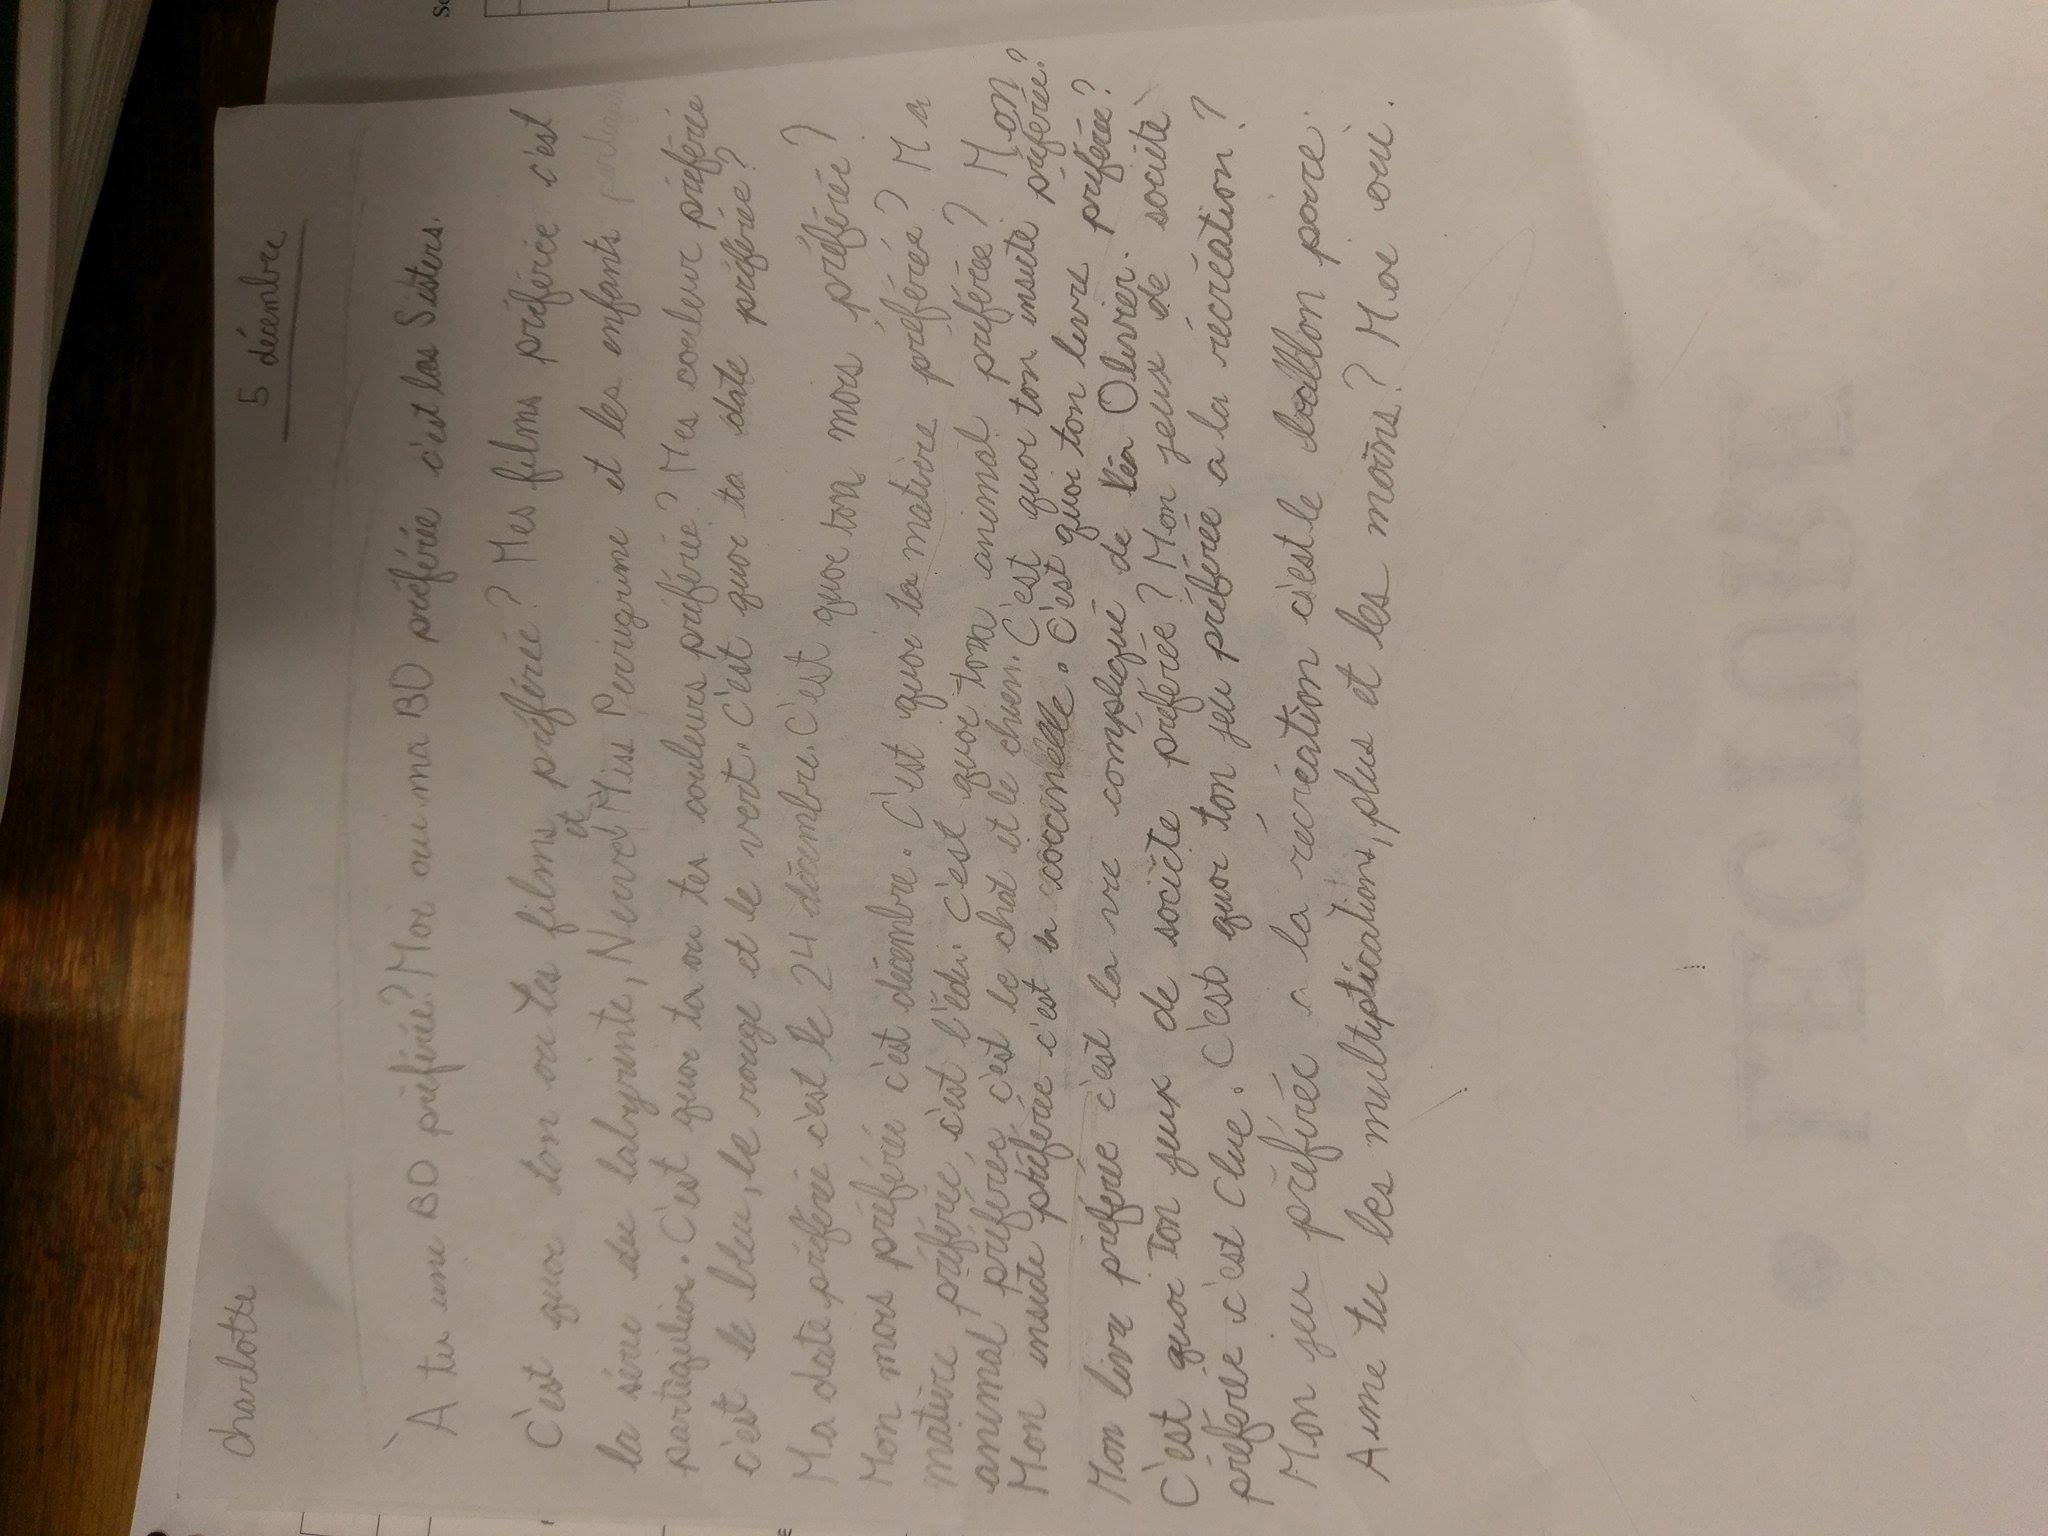 Charlotte
5 décembre
À tu une BD préférée? Moi ou ma BD préférée c'est las Sisters.
C'est quoi ton ou tes films préférée? Mes films préférée c'est
la série du labyrinte, Nerve et Miss Périgrine et les enfants
partiquilier. C'est quoi ta ou tes couleurs préférée? Mes couleur préférée
c'est le bleu, le rouge et le vert. C'est quoi ta date préférée?
Ma date préférée c'est le 24 décembre. C'est quoi ton mois préférée?
Mon mois préférée c'est décembre. C'est quoi ta matière préférée? Ma
matière préférée, c'est l'édu. C'est quoi ton animal préférée? Mon
animal préférée c'est le chat et le chien. C'est quoi ton insecte préférée?
Mon insecte préférée c'est la coccinelle. C'est quoi ton livre préférée?
Mon livre préférée c'est la vie compliqué de Léa Olivier.
C'est quoi ton jeux de société préférée? Mon jeux de société
préférée c'est Clue. C'est quoi ton jeu préférée a la récréation?
Mon jeu préférée a la récréation c'est le ballon poire.
Aime tu les multiplications, plus et les moins? Moi oui.
LECTURE